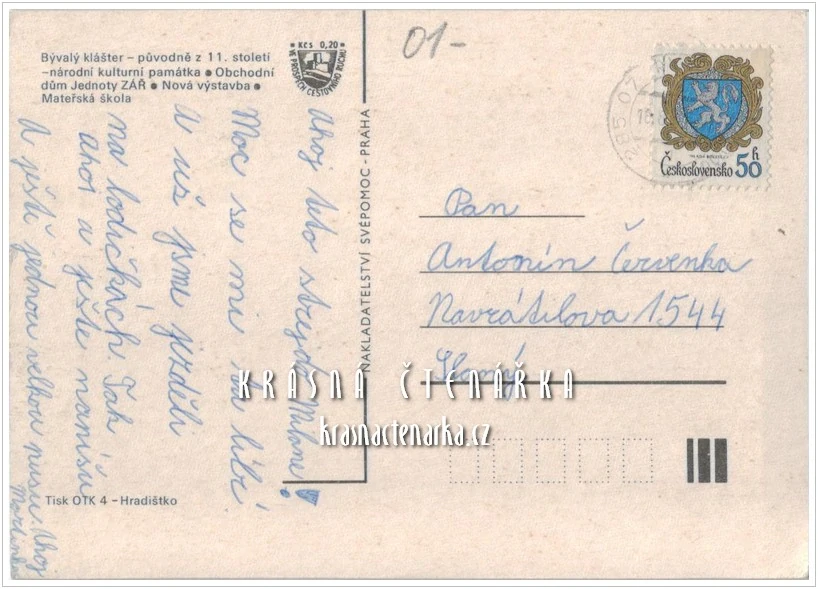 Bývalý klášter – původně z 11. století
-národní kulturní památka ● Obchodní
dům Jednoty ZÁŘ ● Nová výstavba ●
Mateřská škola
Kčs 0,20
VE PROSPĚCH CESTOVNÍHO RUCHU
01-
Československo 50 h
Ahoj teto strejdo Milane!
Moc se mi tu líbí
a už jsme jezdili
na lodičkách. Tak
ahoj a ještě napíšu
A ještě jednou velkou pusu. Ahoj
Martinka
NAKLADATELSTVÍ SVÉPOMOC - PRAHA
Pan
Antonín Červenka
Navrátilova 1544
Slaný
KRÁSNÁ ČTENÁŘKA
krasnactenarka.cz
Tisk OTK 4 – Hradištko